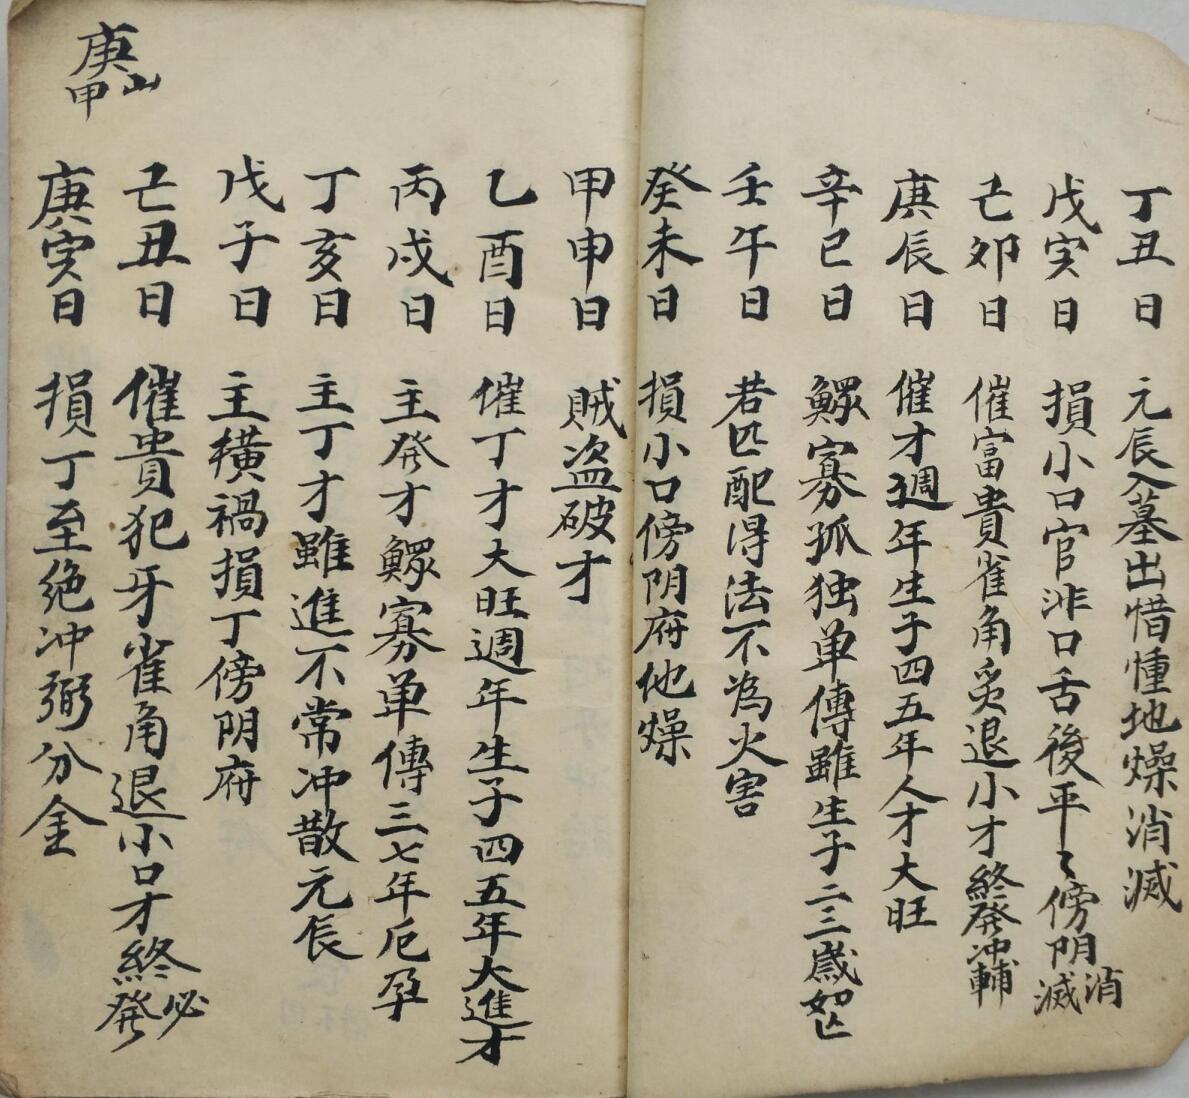 丁丑日 元辰入墓出惜憧地燥消滅
戊寅日 損小口官非口舌後平〻傍阴消滅
己卯日 催富貴雀角爻退小才終発冲輔
庚辰日 催才週年生子四五年人才大旺
辛巳日 鰥寡孤独单傳雖生子二三歲如亡
壬午日 若匹配得法不為火害
癸未日 損小口傍阴府地燥
甲申日 賊盗破才
乙酉日 催丁才大旺週年生子四五年大進才
丙戌日 主発才鰥寡单傳三七年厄孕
丁亥日 主丁才雖進不常冲散元辰
戊子日 主横禍損丁傍阴府
己丑日 催貴犯牙雀角退小口才終必発
庚寅日 損丁至绝冲弼分金
庚山甲